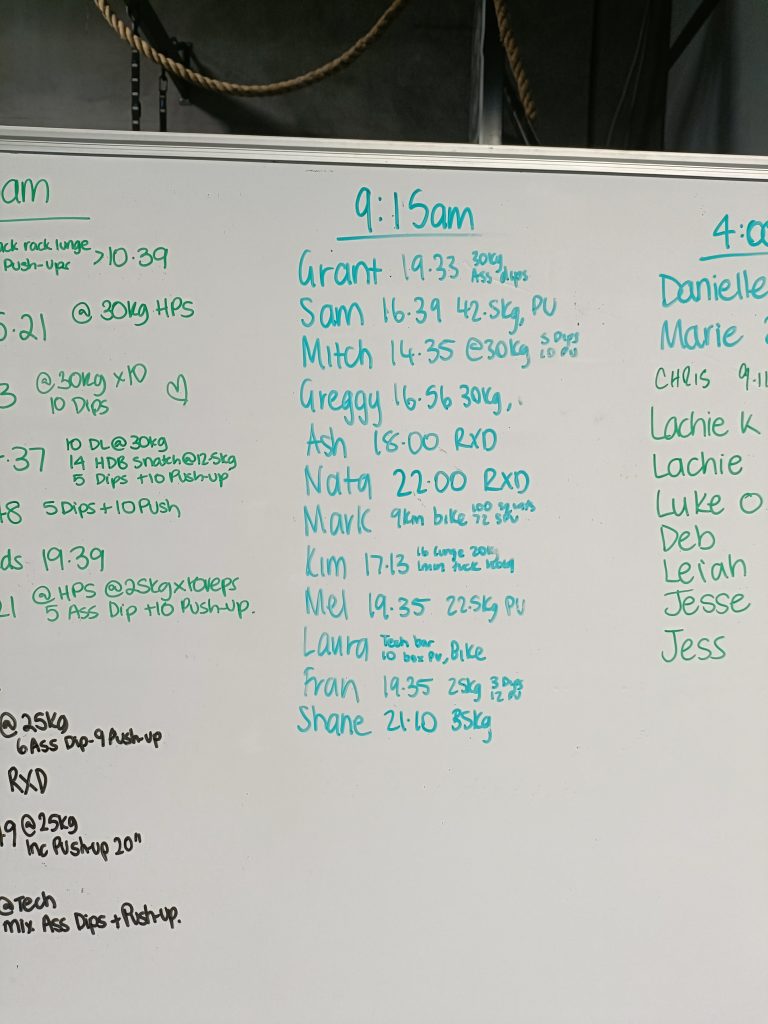 am
ack rack lunge
Push-ups >10.39
5.21 @ 30kg HPS
3 @30kg x10
10 Dips
.37 10 DL@30kg
14 HDB snatch@12.5kg
5 Dips +10 Push-up
48 5Dips+10Push
ds 19.39
21 @HPS @25kg x10reps
5 Ass Dip +10 Push-up.
@25kg
6 Ass Dip-9 Push-up
RXD
49 @25kg
Inc Push-up 20"
@Tech
mix Ass Dips + Push-up.
9:15am
Grant 19.33 30kg
Ass dips
Sam 16.39 42.5kg, PU
Mitch 14.35 @30kg 5 Dips
10 PU
Greggy 16.56 30kg,
Ash 18.00 RXD
Nata 22.00 RXD
Mark 9km bike 100
72
Kim 17.13 16 lunge 20kg
tuck
Mel 19.35 22.5kg PU
Laura Tech bar
10 box PU, Bike
Fran 19.35 25kg 3 Dips
12 PU
Shane 21.10 35kg
4:00
Danielle
Marie 2
CHRIS 9.11
Lachie K
Lachie
Luke O
Deb
Leiah
Jesse
Jess